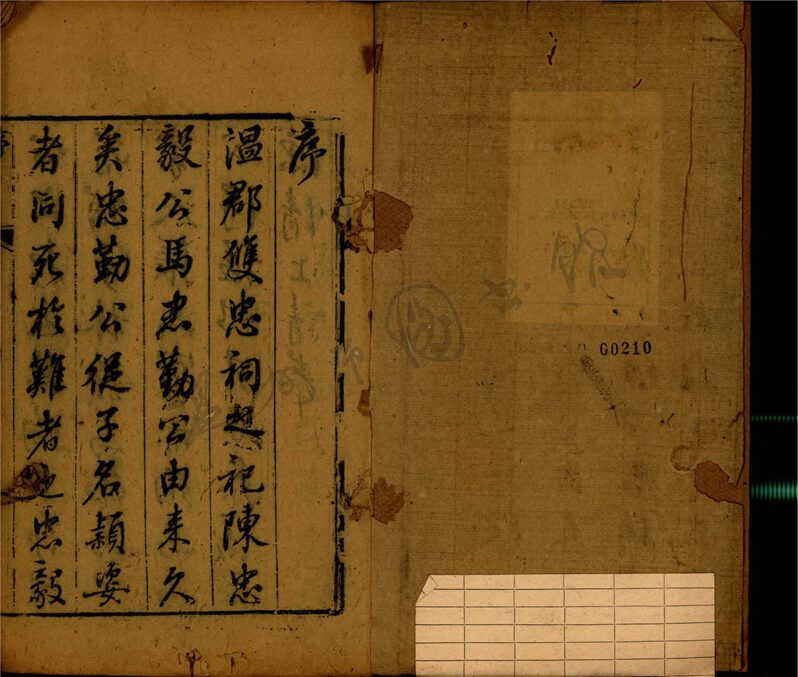 序
溫郡雙忠祠起祀陳忠
毅公馬忠勤公由来久
矣忠勤公從子名穎姿
者同死於難者也忠毅
00210